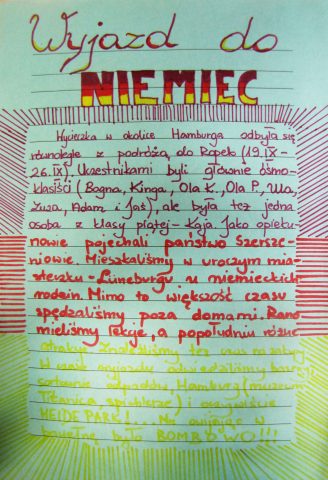 Wyjazd do
NIEMIEC
Wycieczka w okolice Hamburga odbyła się
równolegle z podróżą do Ropek (19.IX-
26.IX). Uczestnikami byli głównie ósmo-
klasiści (Bogna, Kinga, Ola K., Ola P., Ula,
Zuza, Adam i Jaś), ale była też jedna
osoba z klasy piątej - Kaja. Jako opieku-
nowie pojechali państwo Szersze-
niowie. Mieszkaliśmy w uroczym mia-
steczku - Lüneburgu u niemieckich
rodzin. Mimo to większość czasu
spędzaliśmy poza domami. Rano
mieliśmy lekcje, a popołudniu różne
atrakcje. Znaleźliśmy też czas na zakupy.
W czasie wyjazdu odwiedziliśmy basen,
sortownię odpadów, Hamburg (muzeum
Titanica, spichlerze) i oczywiście
HEIDE PARK!... Nie owijając w
bawełnę było BOMBOWO!!!